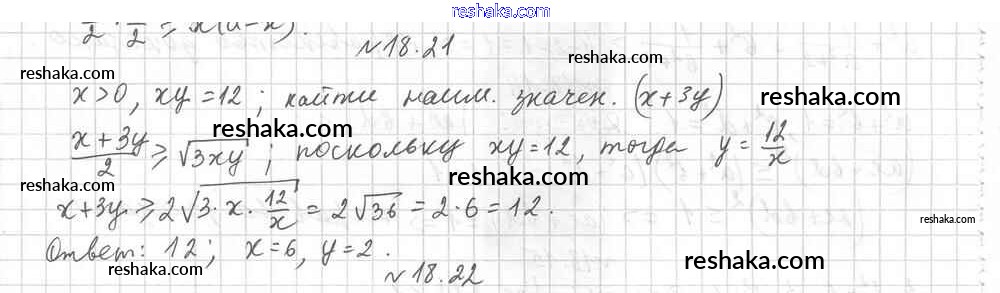 reshaka.com
2/2 ≥ x(a-x).
№18.21
reshaka.com
reshaka.com
x>0, xy=12; найти наим. значен. (x+3y)
reshaka.com
reshaka.com
(x+3y)/2 ≥ √3xy; поскольку xy=12, тогда y=12/x
reshaka.com
reshaka.com
x+3y ≥ 2√(3·x·12/x) = 2√36 = 2·6 = 12.
reshaka.com
reshaka.com
Ответ: 12; x=6, y=2.
reshaka.com
reshaka.com
№18.22
reshaka.com